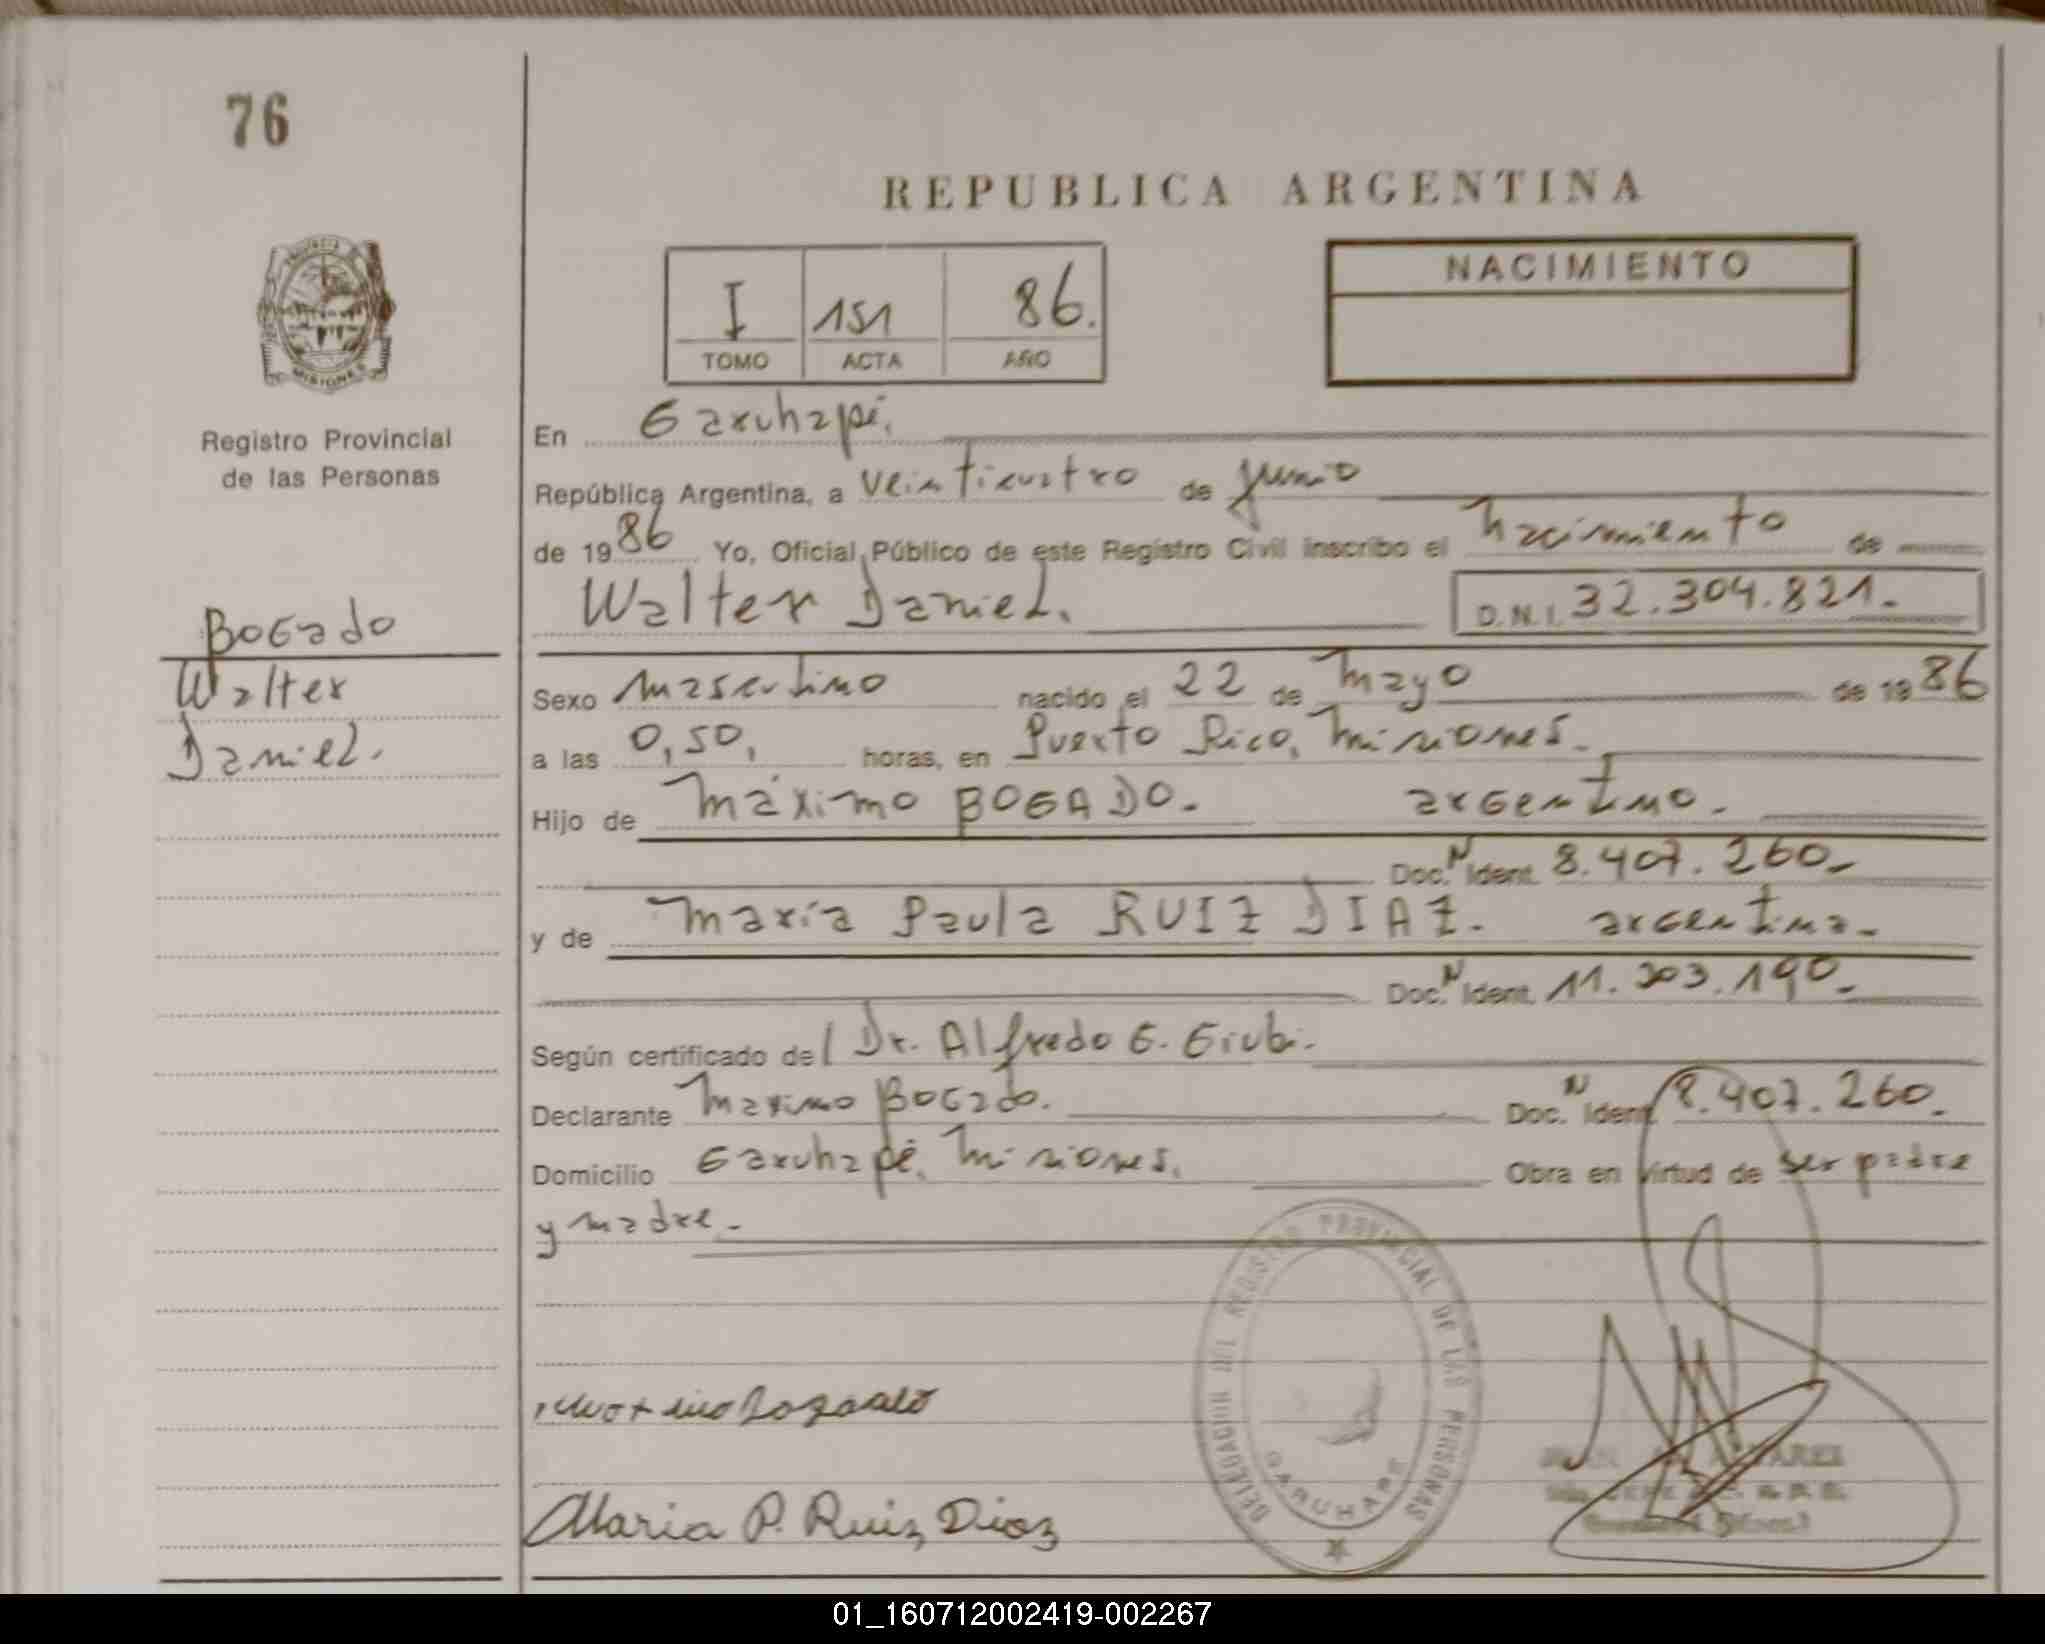 76
REPUBLICA ARGENTINA
PROVINCIA DE
MISIONES
Registro Provincial
de las Personas
I 151 86.
TOMO ACTA AÑO
NACIMIENTO
En Garuhapé.
República Argentina, a veinticuatro de junio
de 1986 Yo, Oficial Público de este Registro Civil inscribo el nacimiento de
Walter Daniel. D.N.I. 32.304.821.-
Bogado
Walter
Daniel.
Sexo masculino nacido el 22 de mayo de 1986
a las 0,50, horas, en Puerto Rico, Misiones.
Hijo de Máximo BOGADO. argentino.
Doc. N Ident. 8.407.260.-
y de María Paula RUIZ DIAZ. argentina.-
Doc. N Ident. 11.303.190.-
Según certificado del Dr. Alfredo G. Giubi.
Declarante Maximo Bogado. Doc. N Ident. 8.407.260.
Domicilio Garuhapé, Misiones. Obra en virtud de ser padre
y madre.-
DELEGACION DEL REGISTRO PROVINCIAL DE LAS PERSONAS
GARUHAPE
Maria P. Ruiz Diaz
01_160712002419-002267